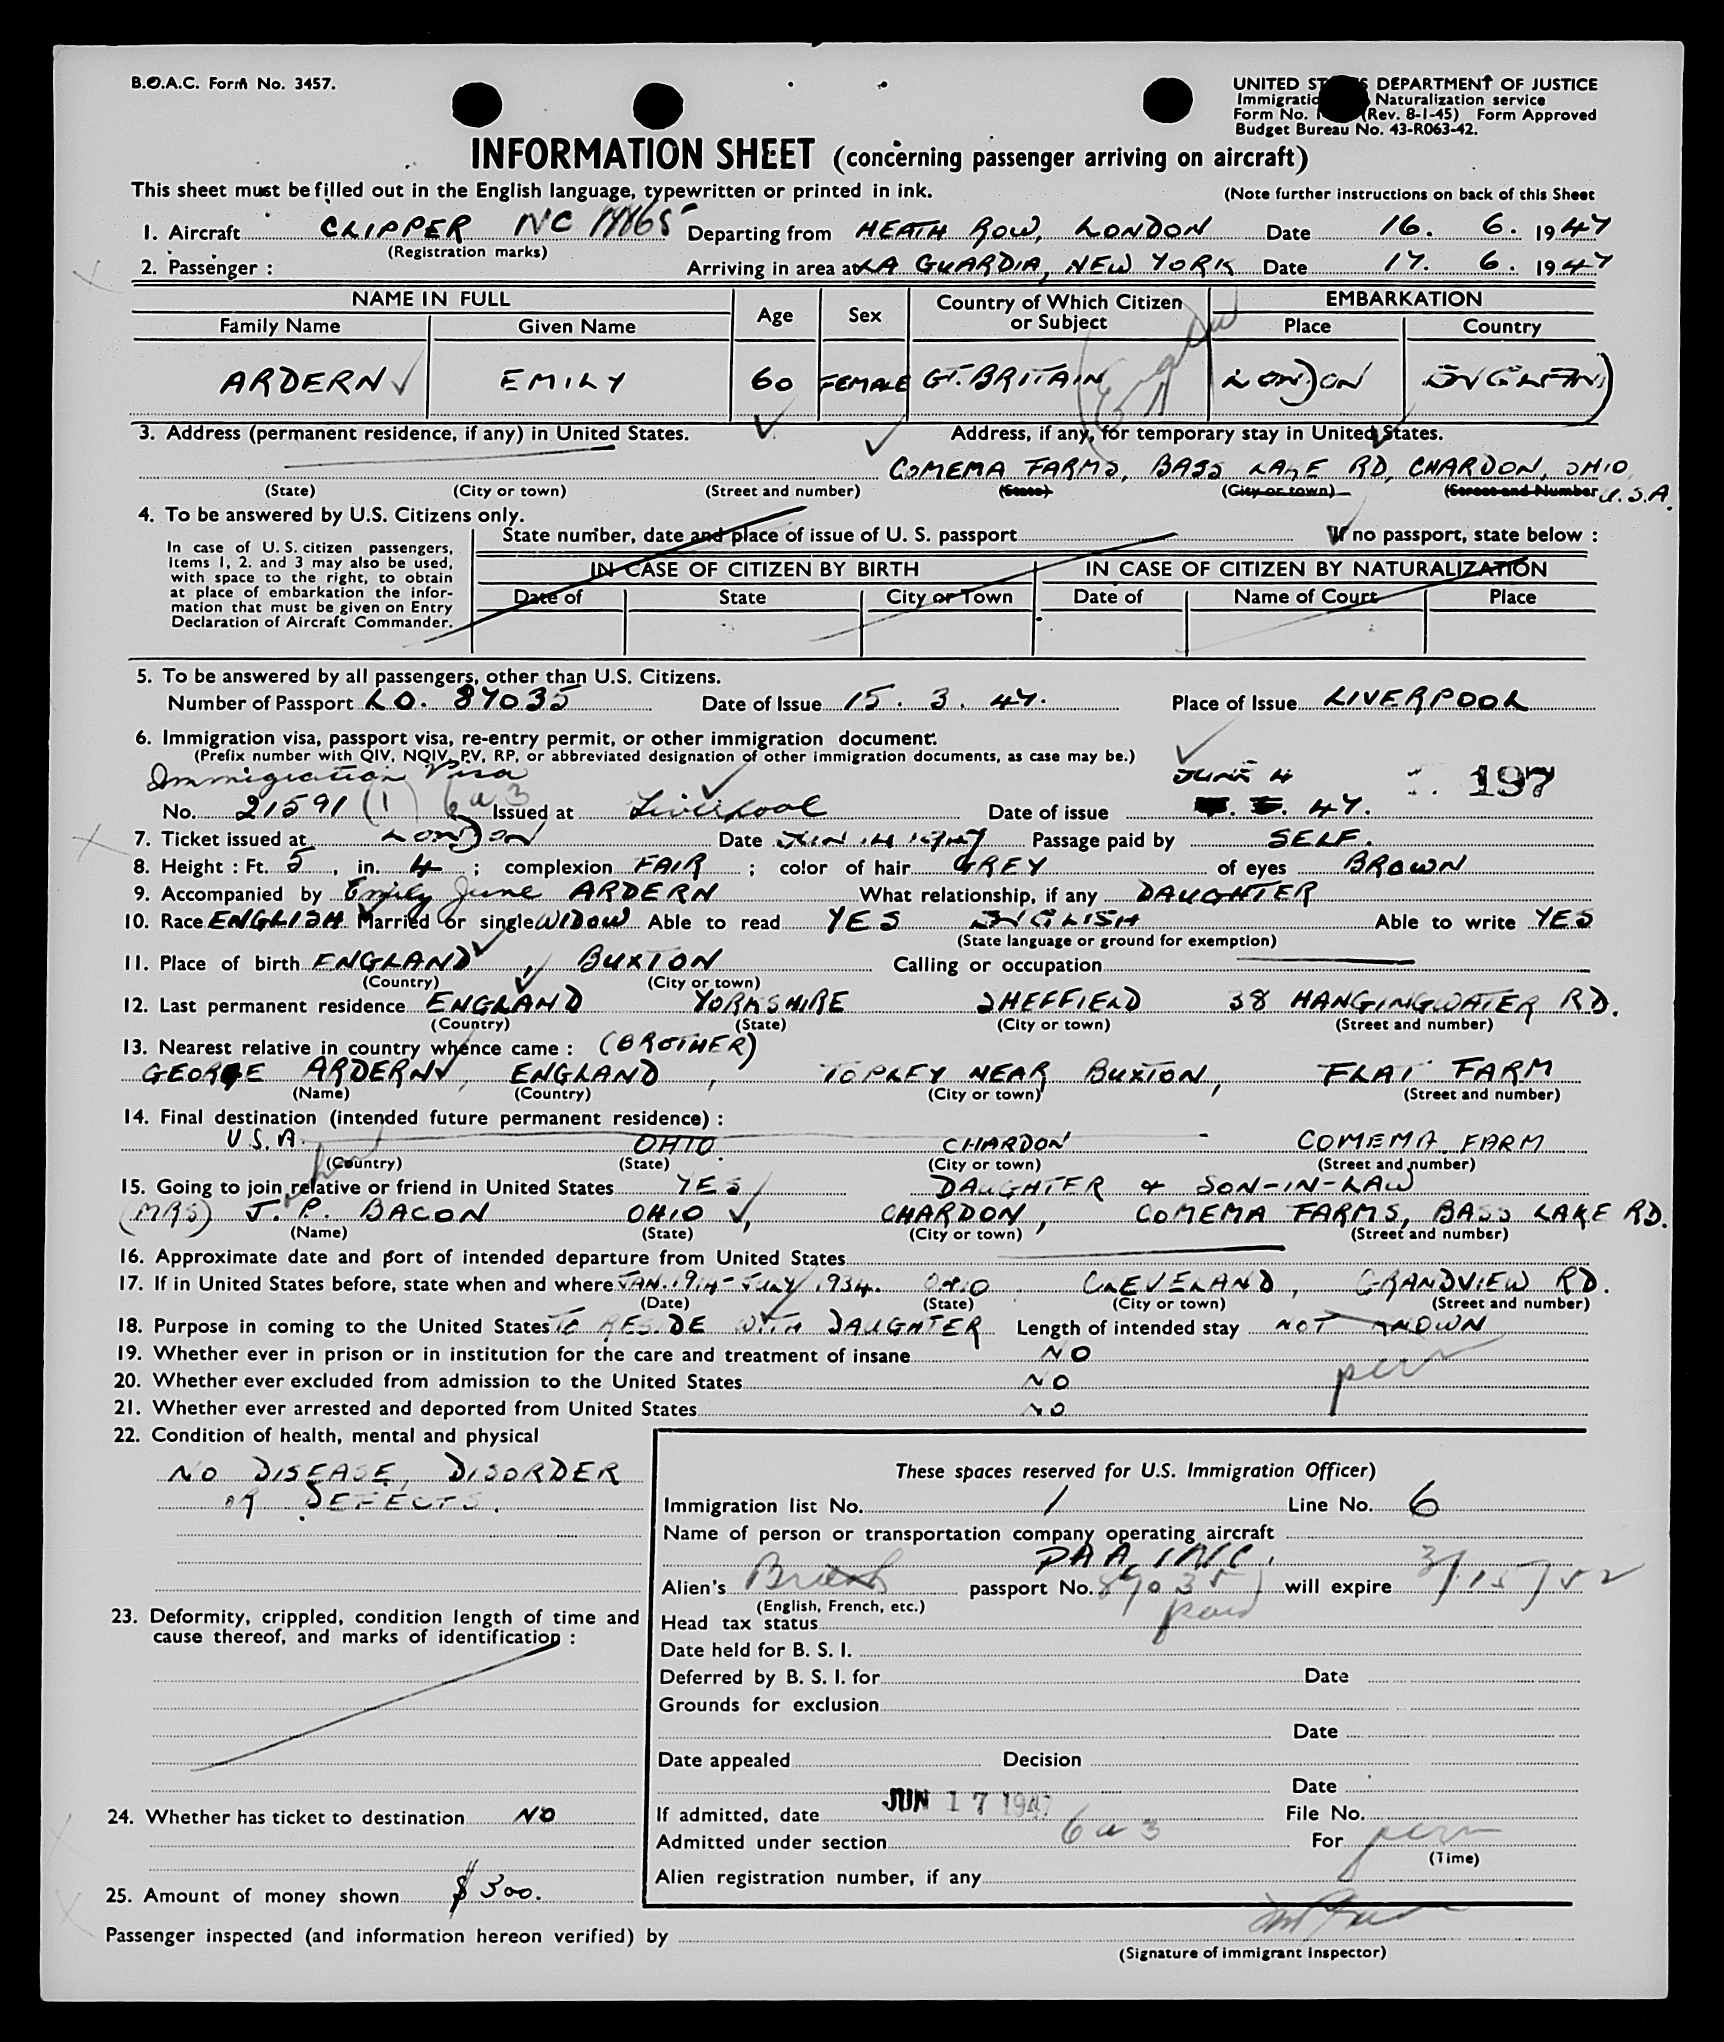 B.O.A.C. Form No. 3457.
UNITED STATES DEPARTMENT OF JUSTICE
Immigration Naturalization service
Form No. (Rev. 8-1-45) Form Approved
Budget Bureau No. 43-R063-42.
INFORMATION SHEET (concerning passenger arriving on aircraft)
This sheet must be filled out in the English language, typewritten or printed in ink. (Note further instructions on back of this Sheet
1. Aircraft CLIPPER NC Departing from HEATH ROW, LONDON Date 16. 6. 1947
(Registration marks)
2. Passenger : Arriving in area at LA GUARDIA, NEW YORK Date 17. 6. 1947
NAME IN FULL Age Sex Country of Which Citizen or Subject EMBARKATION
Family Name Given Name Place Country
ARDERN EMILY 60 FEMALE GT. BRITAIN LONDON ENGLAND
3. Address (permanent residence, if any) in United States. Address, if any, for temporary stay in United States.
COMEMA FARMS, BASS LAKE RD, CHARDON, OHIO, U.S.A.
(State) (City or town) (Street and number) (State) (City or town) (Street and Number
4. To be answered by U.S. Citizens only.
State number, date and place of issue of U. S. passport If no passport, state below :
In case of U. S. citizen passengers,
Items 1, 2. and 3 may also be used,
with space to the right, to obtain
at place of embarkation the infor-
mation that must be given on Entry
Declaration of Aircraft Commander.
IN CASE OF CITIZEN BY BIRTH IN CASE OF CITIZEN BY NATURALIZATION
Date of State City or Town Date of Name of Court Place
5. To be answered by all passengers, other than U.S. Citizens.
Number of Passport LO. 87035 Date of Issue 15. 3. 47. Place of Issue LIVERPOOL
6. Immigration visa, passport visa, re-entry permit, or other immigration document:
(Prefix number with QIV, NQIV, PV, RP, or abbreviated designation of other immigration documents, as case may be.)
Immigration Visa JUNE 4 197
No. 21591 (1) 6 a 3 Issued at Liverpool Date of issue 47.
7. Ticket issued at LONDON Date JUN 14 1947 Passage paid by SELF.
8. Height : Ft. 5, in. 4 ; complexion FAIR ; color of hair GREY of eyes BROWN
9. Accompanied by Emily June ARDERN What relationship, if any DAUGHTER
10. Race ENGLISH Married or single WIDOW Able to read YES ENGLISH Able to write YES
(State language or ground for exemption)
11. Place of birth ENGLAND, BUXTON Calling or occupation
(Country) (City or town)
12. Last permanent residence ENGLAND YORKSHIRE SHEFFIELD 38 HANGINGWATER RD.
(Country) (State) (City or town) (Street and number)
13. Nearest relative in country whence came : (BROTHER)
GEORGE ARDERN, ENGLAND, TOPLEY NEAR BUXTON, FLAT FARM
(Name) (Country) (City or town) (Street and number)
14. Final destination (intended future permanent residence) :
U.S.A. OHIO. CHARDON COMEMA FARM
(Country) (State) (City or town) (Street and number)
15. Going to join relative or friend in United States YES DAUGHTER & SON-IN-LAW
(MRS) J. P. BACON OHIO, CHARDON, COMEMA FARMS, BASS LAKE RD.
(Name) (State) (City or town) (Street and number)
16. Approximate date and port of intended departure from United States
17. If in United States before, state when and where JAN. 1914 - JULY 1934. OHIO, CLEVELAND, GRANDVIEW RD.
(Date) (State) (City or town) (Street and number)
18. Purpose in coming to the United States TO RESIDE WITH DAUGHTER Length of intended stay NOT KNOWN
19. Whether ever in prison or in institution for the care and treatment of insane NO
perm
20. Whether ever excluded from admission to the United States NO
21. Whether ever arrested and deported from United States NO
22. Condition of health, mental and physical
NO DISEASE, DISORDER
OR DEFECTS.
These spaces reserved for U.S. Immigration Officer)
Immigration list No. 1 Line No. 6
Name of person or transportation company operating aircraft
PAA, INC.
Alien's British passport No. 87035 will expire 3/15/52
(English, French, etc.)
23. Deformity, crippled, condition length of time and
cause thereof, and marks of identification :
Head tax status paid
Date held for B. S. I.
Deferred by B. S. I. for Date
Grounds for exclusion
Date
Date appealed Decision
Date
24. Whether has ticket to destination NO
If admitted, date JUN 17 1947 File No.
Admitted under section 6 a 3 For perm
(Time)
Alien registration number, if any
25. Amount of money shown $300.
Passenger inspected (and information hereon verified) by
(Signature of immigrant inspector)